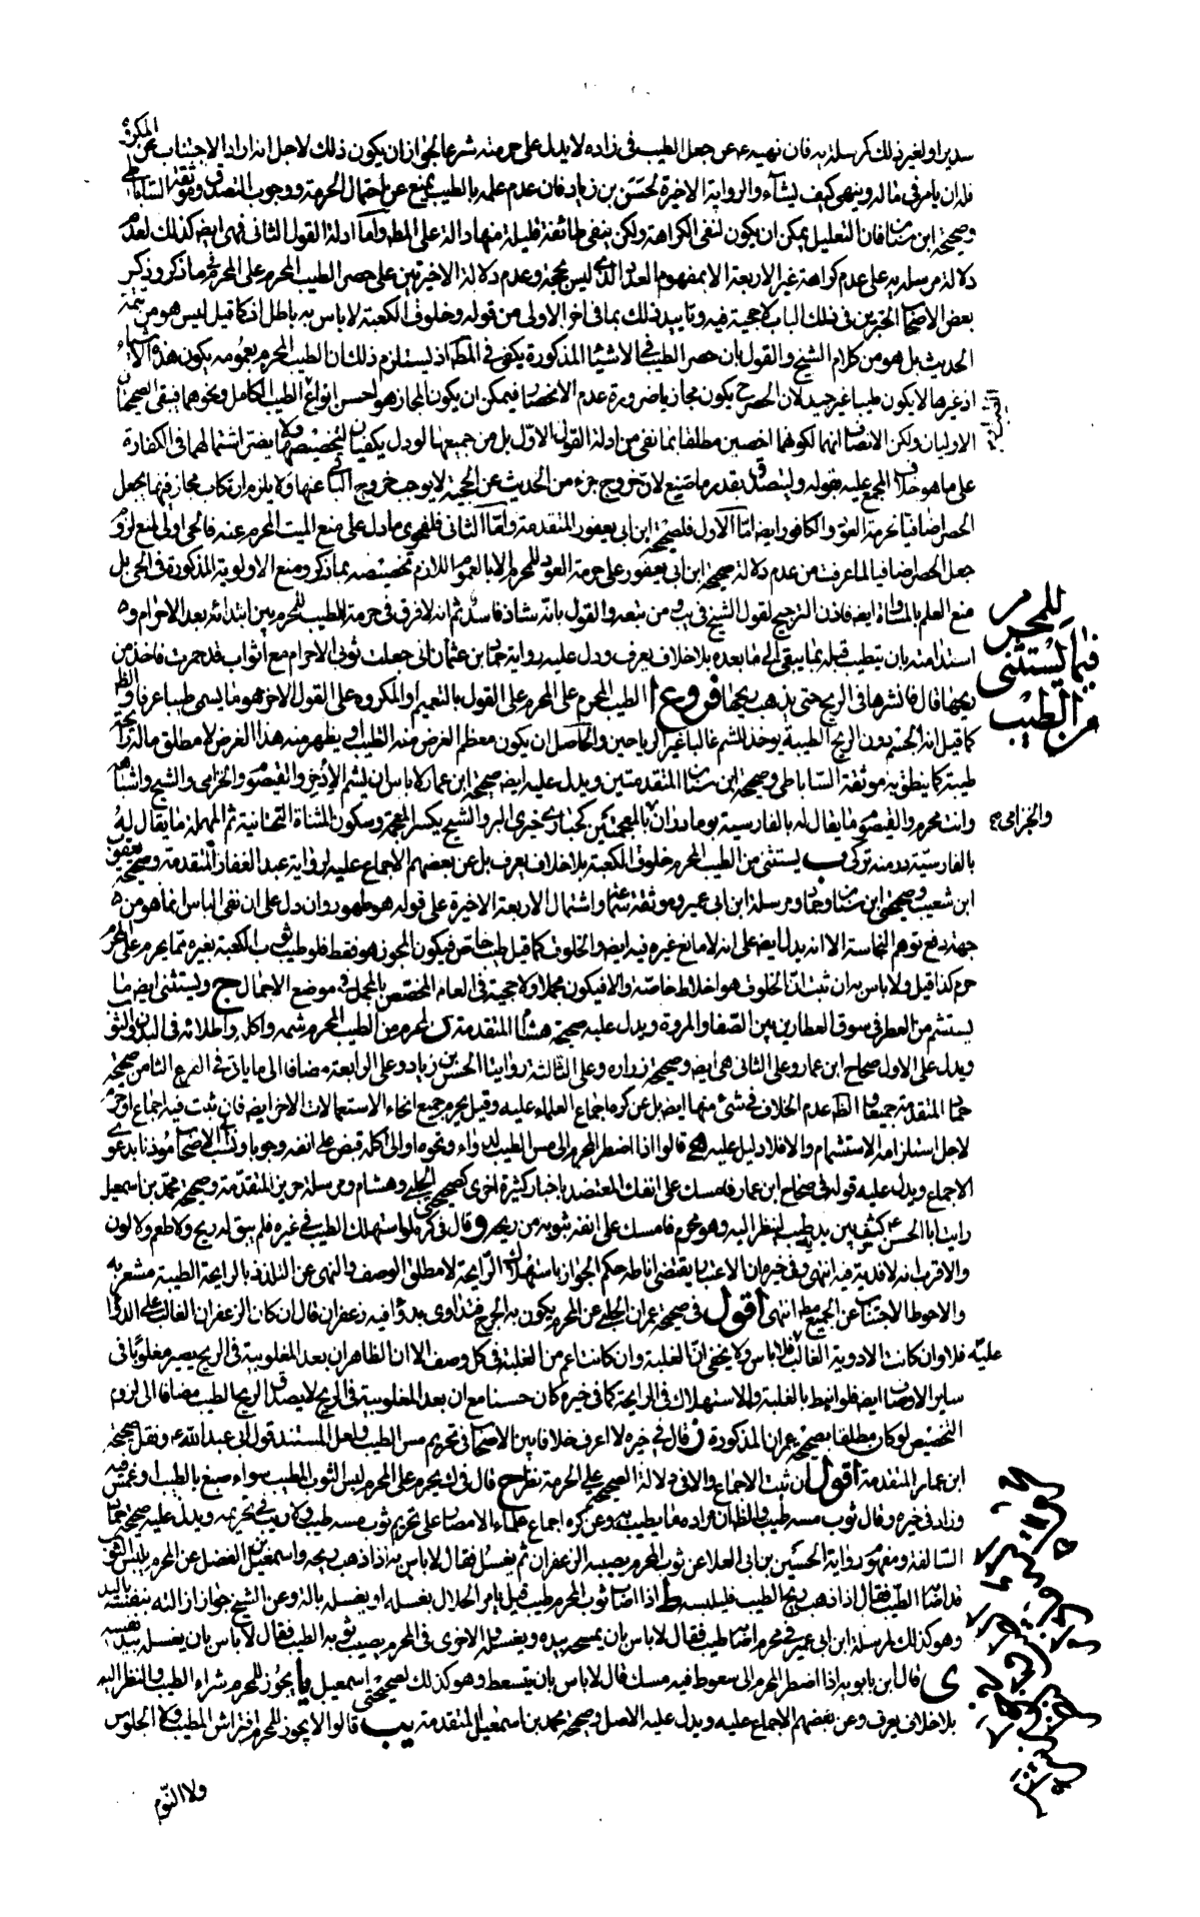 سدير او لغير ذلك كمرسلة يه فان نهيه عه عن جعل الطيب فى زاده لا يدل على حرمته شرعا لجواز ان يكون ذلك لاجل انه اراد الاجتناب عن المكروه
فله ان يامر فى ماله وينهى كيف ليشآء والرواية الاخيرة لحسن بن زياد فان عدم علمه بالطيب يمنع عن احتمال الحرمة ووجوب التصدق وموثقة الساباطى
وصحيحة ابن سنان فان التعليل يمكن ان يكون لنفى الكراهة ولكن ينفى طائفة قليلة منها دالة على المط واما ادلة القول الثانى فهى ايضه كذلك لعدم
دلالة مرسلة يه على عدم كراهة غير الاربعة الا بمفهوم العدد الذى ليس بحجة وعدم دلالة الاخيرتين على حصر الطيب المحرم على المحرم فيما ذكر وذكر
بعض الاصحاب الخبرين فى ذلك الباب لا حجية فيه وتاييد ذلك بما فى اخر الاولى من قوله وخلوف الكعبة لا باس به باطل اذ كما قيل ليس هو من تتمة
الحديث بل هو من كلام الشيخ والقول بان حصر الطيب فى الاشياء المذكورة يكفى فى المط اذ يستلزم ذلك ان الطيب المحرم بعمومه يكون هذه الاشياء
اذ غيرها لا يكون طيبا غير جيد لان الحصر ح يكون مجازيا ضرورة عدم الانحصار فيمكن ان يكون المجاز هو احسن انواع الطيب الكامل ونحوهما فيبقى الصحيحان
الاوليان ولكن الانصاف انهما لكونهما اخصين مطلقا بما نفى من ادلة القول الاول بل من جميعها لو دل يكفيان لتخصيصها ولا يضر اشتمالهما فى الكفارة
على ما هو خلاف المجمع عليه بقوله وليتصدق بقدر ما صنع لان خروج جزء من الحديث عن الحجية لا يوجب خروج الباقى عنها ولا يلزم ارتكاب مجاز فيها بجعل
الحصر اضافيا لحرمة العود والكافور ايضه اما الاول فلصحيحة ابن ابى يعفور المتقدمة واما الثانى فلفحوى ما دل على منع الميت المحرم عنه فالحى اولى لمنع لزوم
جعل الحصر اضافيا لما عرفت من عدم دلالة صحيحة ابن ابى يعفور على حرمة العود للمحرم الا بالعموم اللازم تخصيصه بما ذكر ومنع الاولوية المذكورة فى الحى بل
منع العلم بالمساواة ايضه فاذن الترجيح لقول الشيخ فى يب ومن تبعه والقول بانه شاذ فاسد ثم انه لا فرق فى حرمة الطيب للمحرم بين ابتدائه بعد الاحرام و
استدامته بان يتطيب قبله بما يبقى الى ما بعده بلا خلاف يعرف ودل عليه رواية حماد بن عثمان انى جعلت ثوبى الاحرام مع اثواب قد جمرت فاخذ من
ريحها قال فانشرها فى الريح حتى يذهب ريحها فروع ا الطيب المحرم على المحرم على القول بالتعميم او المكروه على القول الاخر هو ما يسمى طيبا عرفا والظ
كما قيل انه الجسم ذو الريح الطيبة يوخذ للشم غالبا غير الرياحين والحاصل ان يكون معظم الغرض منه التطيب او يظهر منه هذا الغرض لا مطلق ماله رائحة
طيبة كما ينطق به موثقة الساباطى وصحيحة ابن سنان المتقدمتين ويدل عليه ايضه صحيحة ابن عمار لا باس ان يشم الاذخر والقيصوم والخزامى والشيح واشباهه
وانت محرم والقيصوم ما يقال له بالفارسية بوما دران بالمعجمتين كحبارى خيرى البر والشيح بكسر المعجمة وسكون المثناة التحتانية ثم المهملة ما يقال له
بالفارسية درمنه تركى ب يستثنى من الطيب المحرم خلوق الكعبة بلا خلاف يعرف بل عن بعضهم الاجماع عليه لرواية عبد الغفار المتقدمة وصحيحة يعقوب
ابن شعيب وصحيحتى ابن سنان وحماد ومرسلة ابن ابى عمير وموثقة سماعة واشتمال الاربعة الاخيرة على قوله هو طهور وان دل على ان نفى الباس انما هو من
جهة دفع توهم النجاسة الا انه يدل ايضه على انه لا مانع غيره فيه ايضه والخلوق كما قيل طيب خاص فيكون المجوز هو فقط فلو طيب ثوب الكعبة بغيره مما يحرم على المحرم
حرم كذا قيل ولا باس به ان ثبت ان الخلوق هو اخلاط خاصة والا فيكون مجملا ولا حجية فى العام المخصص بالمجمل فى موضع الاجمال ج ويستثنى ايضه ما
يستشم من العطر فى سوق العطارين بين الصفا والمروة ويدل عليه صحيحة هشام المتقدمة د يحرم من الطيب المحرم شمه واكله واطلائه فى البدن والثوب
ويدل على الاول صحاح ابن عمار وعلى الثانى هى ايضه وصحيحة زرارة وعلى الثالثة روايتا الحسن بن زياد وعلى الرابعة مضافا الى ما ياتى فى الفرع الثامن صحيحة
حماد المتقدمة جميعا الظ عدم الخلاف فى شئ منها ايضه بل عن كره اجماع العلماء عليه وقيل يحرم جميع انحاء الاستعمالات الاخر ايضه فان ثبت فيه اجماع او حرم
لاجل استلزامه الاستشمام والا فلا دليل عليه ه قالوا اذا اضطر المحرم الى مس الطيب لدواء ونحوه او الى اكله قبض على انفه وجوبا ونسب الى الاصحاب موذنا بدعوى
الاجماع ويدل عليه قوله فى صحاح ابن عمار فامسك على انفك المعتضد باخبار كثيرة اخرى كصحيحتى الحلبى وهشام ومرسلة حريز المتقدمة وصحيحة محمد بن اسمعيل
رايت ابا الحسن ع كشف بين يديه طيب لينظر اليه وهو محرم فامسك على انفه بثوبه من ريحه و قال فى كره لو استهلك الطيب فى غيره فلم يبق له ريح ولا طعم ولا لون
والاقرب انه لا فدية فيه انتهى وفى خيره ان الاعتبار يقتضى اناطة حكم الجواز باستهلاك الرايحة لا مطلق الوصف والنهى عن التلذذ بالرايحة الطيبة مشعر به
والاحوط الاجتناب عن الجميع مط انتهى اقول فى صحيحة عمران الحلبى عن المحرم يكون به الجرح فتداوى بدواء فيه زعفران قال ان كان الزعفران الغالب على الدواء
فلا وان كانت الادوية الغالبة عليه فلا باس ولا يخفى ان الغلبة وان كانت اعم من الغلبة فى كل وصف الا ان الظاهر ان بعد المغلوبية فى الريح يصير مغلوبا فى
ساير الاوصاف ايضه فلو انيط بالغلبة والاستهلاك فى الرايحة كما فى خيره كان حسنا مع ان بعد المغلوبية فى الريح لا يصدق الريح الطيب مضافا الى لزوم
التخصيص لو كان مطلقا بصحيحة عمران المذكورة ز قال فى خيره لا اعرف خلافا بين الاصحاب فى تحريم مس الطيب ولعل المستند قول ابى عبد الله ع ونقل صحيحة
ابن عمار المتقدمة اقول ان ثبت الاجماع والا فى دلالة الصحيحة على الحرمة نظر ح قال فى ك يحرم على المحرم لبس الثوب المطيب سواء صبغ بالطيب او غمس فيه
وزاد فى خيره وقال ثوب مسه طيب والظ ان مراده ما يطيب به وعن كره اجماع علماء الامصار على تحريم ثوب مسه طيب ولا ريب فى تحريمه ويدل عليه صحيحة حماد
السالفة ومفهوم رواية الحسين بن ابى العلا عن ثوب المحرم يصيبه الزعفران ثم يغسل فقال لا باس به اذا ذهب ريحه واسمعيل بن الفضل عن المحرم يلبس الثوب
قد اصابه الطيب فقال اذا ذهب ريح الطيب فليلبسه ط اذا اصاب ثوب المحرم طيب قيل يامر الحلال بغسله او يغسله بالة وعن الشيخ جواز ازالته بنفسه باليد
وهو كذلك لمرسلة ابن ابى عمير فى محرم اصابه طيب فقال لا باس بان يمسحه بيده ويغسله والاخرى فى المحرم يصيب ثوبه الطيب فقال لا باس بان يغسله بيد نفسه
ى قال ابن بابويه اذا اضطر المحرم الى سعوط فيه مسك قال لا باس بان يتسعط وهو كذلك لصحيحتى اسمعيل يا يجوز للمحرم شراء الطيب والنظر اليه
بلا خلاف يعرف وعن بعضهم الاجماع عليه ويدل عليه الاصل وصحيحة محمد بن اسمعيل المتقدمة يب قالوا لا يجوز للمحرم افتراش المطيب ولا الجلوس
للمحرم
فيما يستثنى
من الطيب
والخزامى
ولا النوم